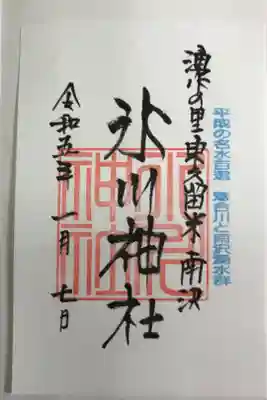 平成の名水百選 落合川と南沢湧水群
湧水の里東久留米南沢
氷川神社
令和五年 一月七日